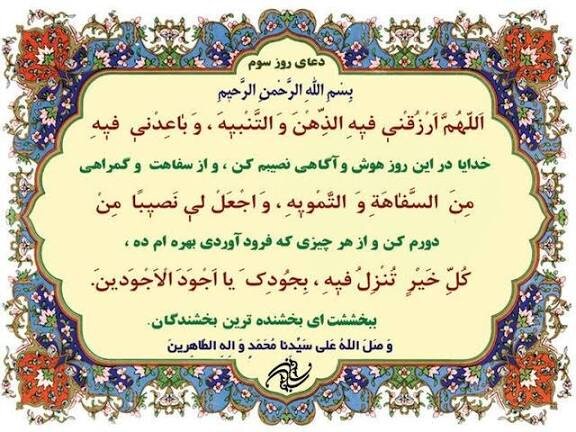 دعای روز سوم
بِسْمِ اللهِ الرَّحْمنِ الرَّحیمِ
اَللّهُمَّ ارْزُقْنی فیهِ الذِّهْنَ وَ التَّنْبیهَ ، وَ باعِدْنی فیهِ
خدایا در این روز هوش و آگاهی نصیبم کن ، و از سفاهت و گمراهی
مِنَ السَّفاهَةِ وَ التَّمْویهِ ، وَ اجْعَلْ لی نَصیبًا مِنْ
دورم کن و از هر چیزی که فرود آوردی بهره ام ده ،
کُلِّ خَیْرٍ تُنْزِلُ فیهِ ، بِجُودِکَ یا اَجْوَدَ الْاَجْوَدینَ.
ببخششت ای بخشنده ترین بخشندگان.
وَ صَلَ اللهُ عَلی سَیِّدِنا مُحَمَدٍ وَ الِهِ الطّاهِرینَ